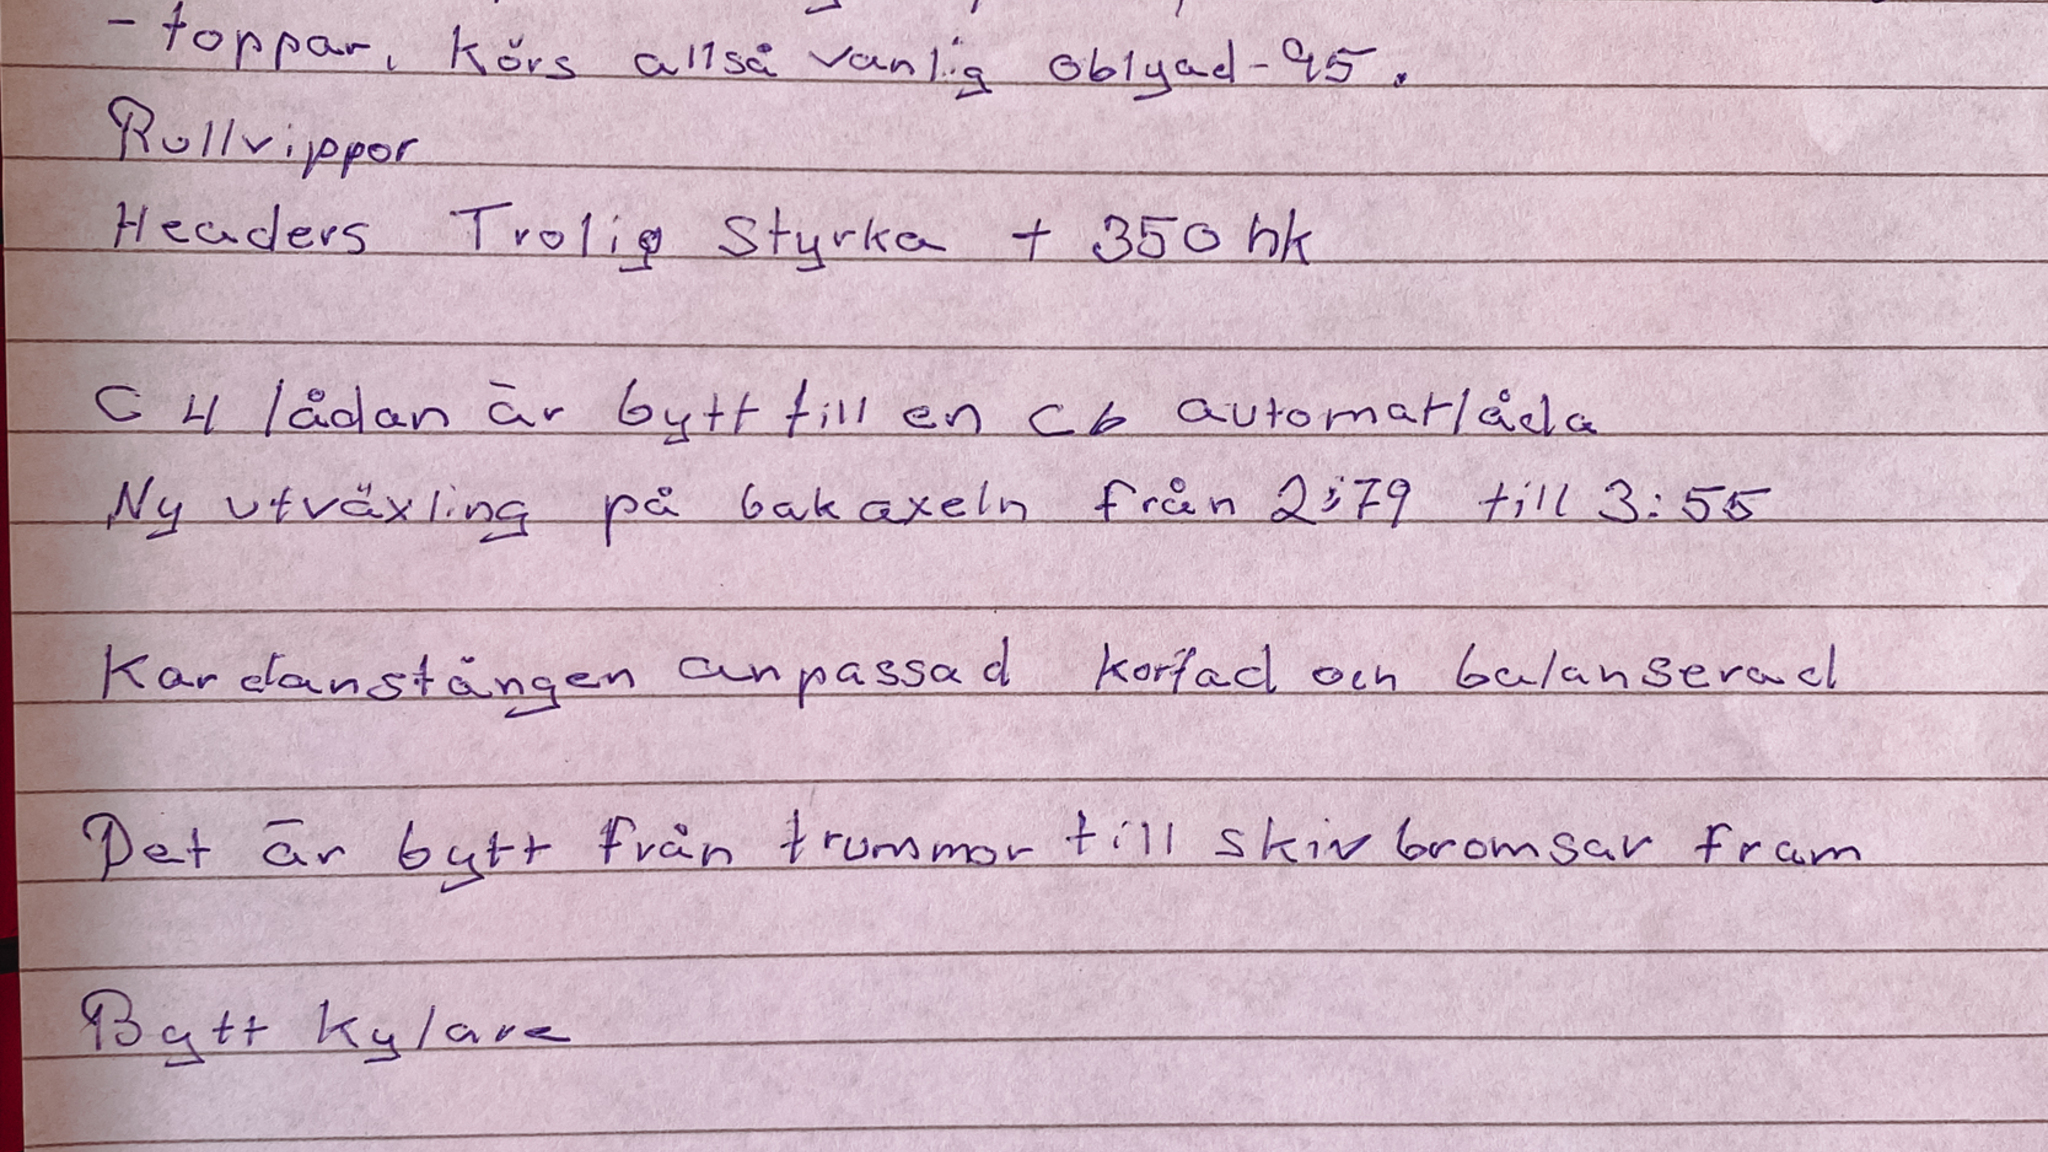 - toppar. Körs allså vanlig oblyad - 95.
Rullvippor
Headers Trolig Styrka + 350 hk
C 4 lådan är bytt till en C6 automatlåda
Ny utväxling på bakaxeln från 2:79 till 3:55
Kardanstången anpassad kortad och balanserad
Det är bytt från trummor till skivbromsar fram
Bytt kylare